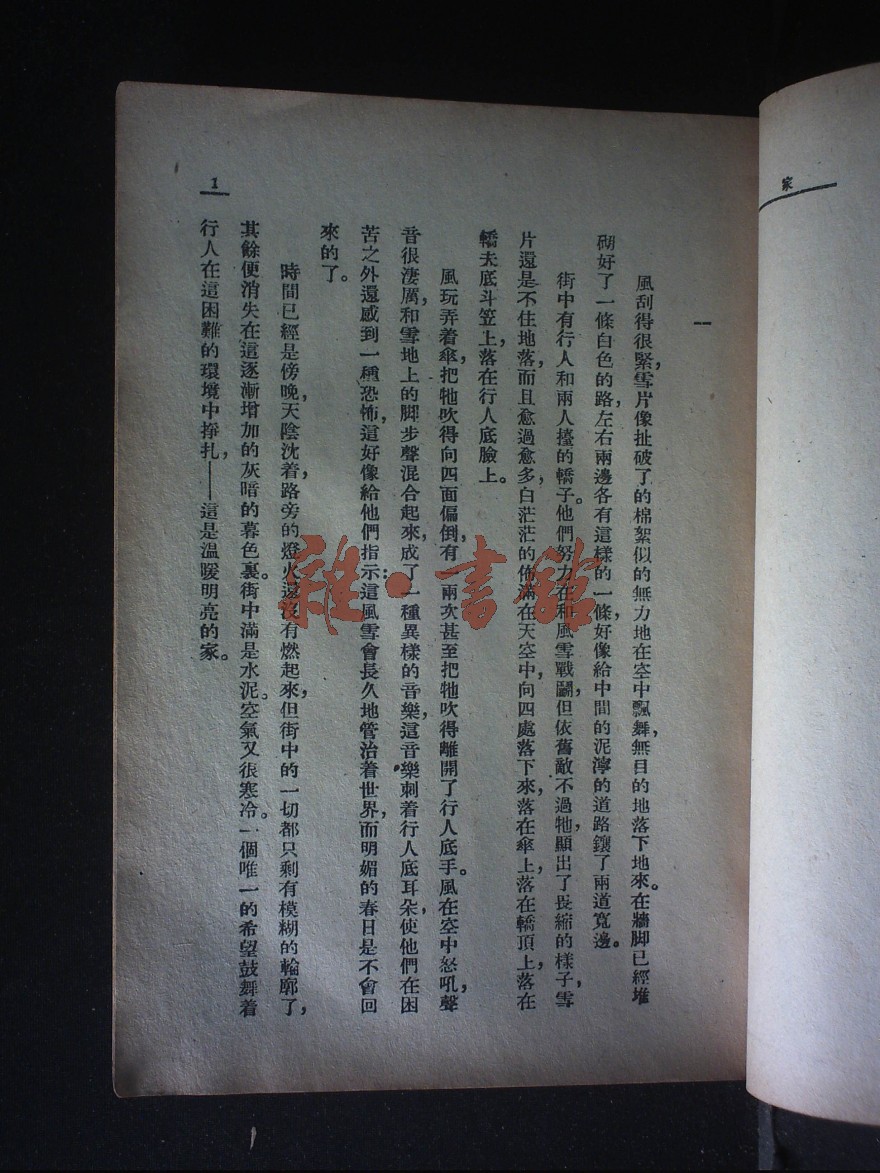 家
一
風刮得很緊,雪片像扯破了的棉絮似的無力地在空中飄舞,無目的地落下地來。在牆脚已經堆
砌好了一條白色的路,左右兩邊各有這樣的一條,好像給中間的泥濘的道路鑲了兩道寬邊。
街中有行人和兩人擡的轎子。他們努力在和風雪戰鬭,但依舊敵不過牠,顯出了畏縮的樣子,雪
片還是不住地落,而且愈過愈多,白茫茫的佈滿在天空中,向四處落下來,落在傘上,落在轎頂上,落在
轎夫底斗笠上,落在行人底臉上。
風玩弄着傘,把牠吹得向四面偏倒,有一兩次甚至把牠吹得離開了行人底手。風在空中怒吼,聲
音很淒厲,和雪地上的脚步聲混合起來,成了一種異樣的音樂,這音樂刺着行人底耳朵,使他們在困
苦之外還感到一種恐怖,這好像給他們指示:這風雪會長久地管治着世界,而明媚的春日是不會回
來的了。
時間已經是傍晚,天陰沈着,路旁的燈火還沒有燃起來,但街中的一切都只剩有模糊的輪廓了,
其餘便消失在這逐漸增加的灰暗的暮色裏。街中滿是水泥,空氣又很寒冷。一個唯一的希望鼓舞着
行人在這困難的環境中掙扎,——這是溫暖明亮的家。
1
雜·書館